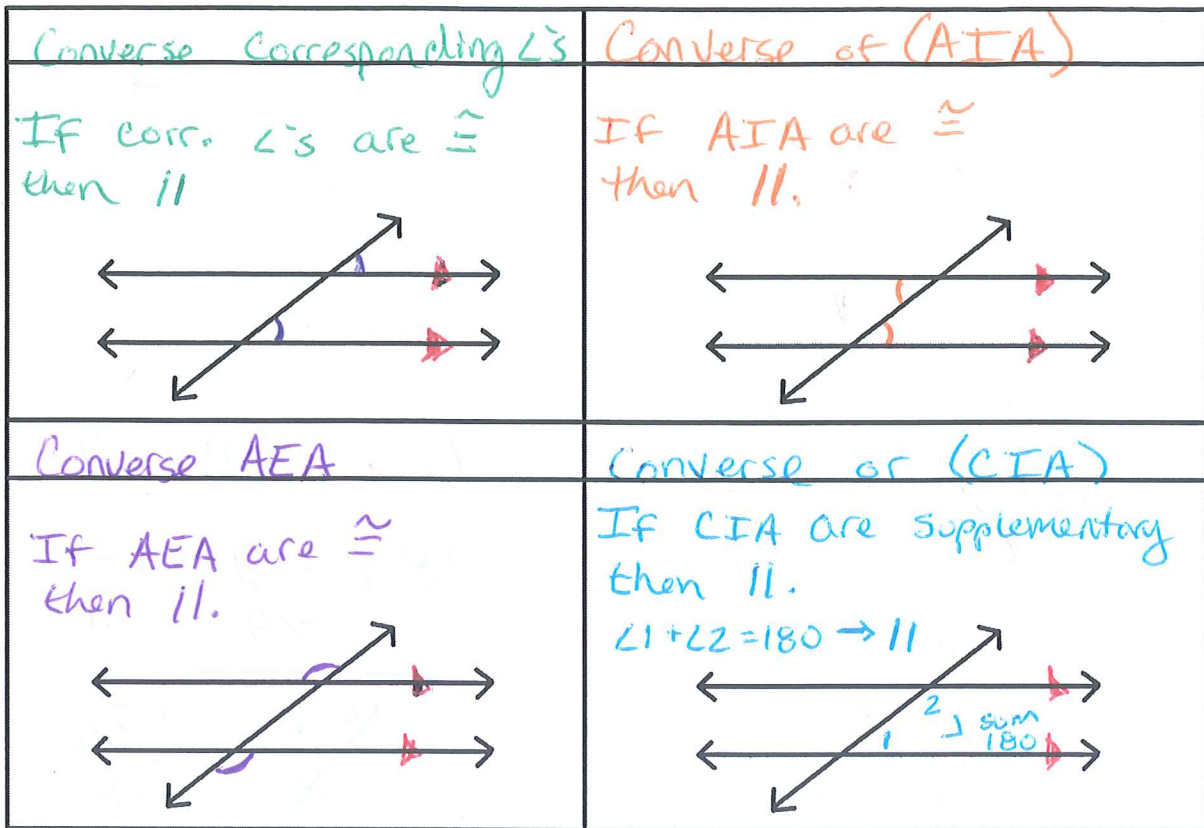 Converse Corresponding ∠'s
If corr. ∠'s are ≅
then //
Converse of (AIA)
If AIA are ≅
then //.
Converse AEA
If AEA are ≅
then //.
Converse or (CIA)
If CIA are supplementary
then //.
∠1+∠2=180 → //
2
1
sum
180